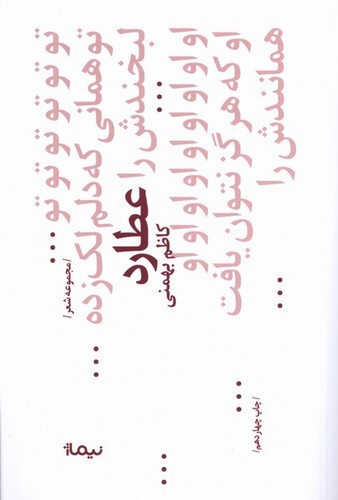 تو تو تو تو تو تو تو ...
تو همانی که دلم لک زده ...
لبخندش را ...
عطارد
کاظم بهمنی
| مجموعه شعر |
او او او او او او او او ...
او که هرگز نتوان یافت ...
همانندش را ...
| چاپ چهاردهم |
نیماژ